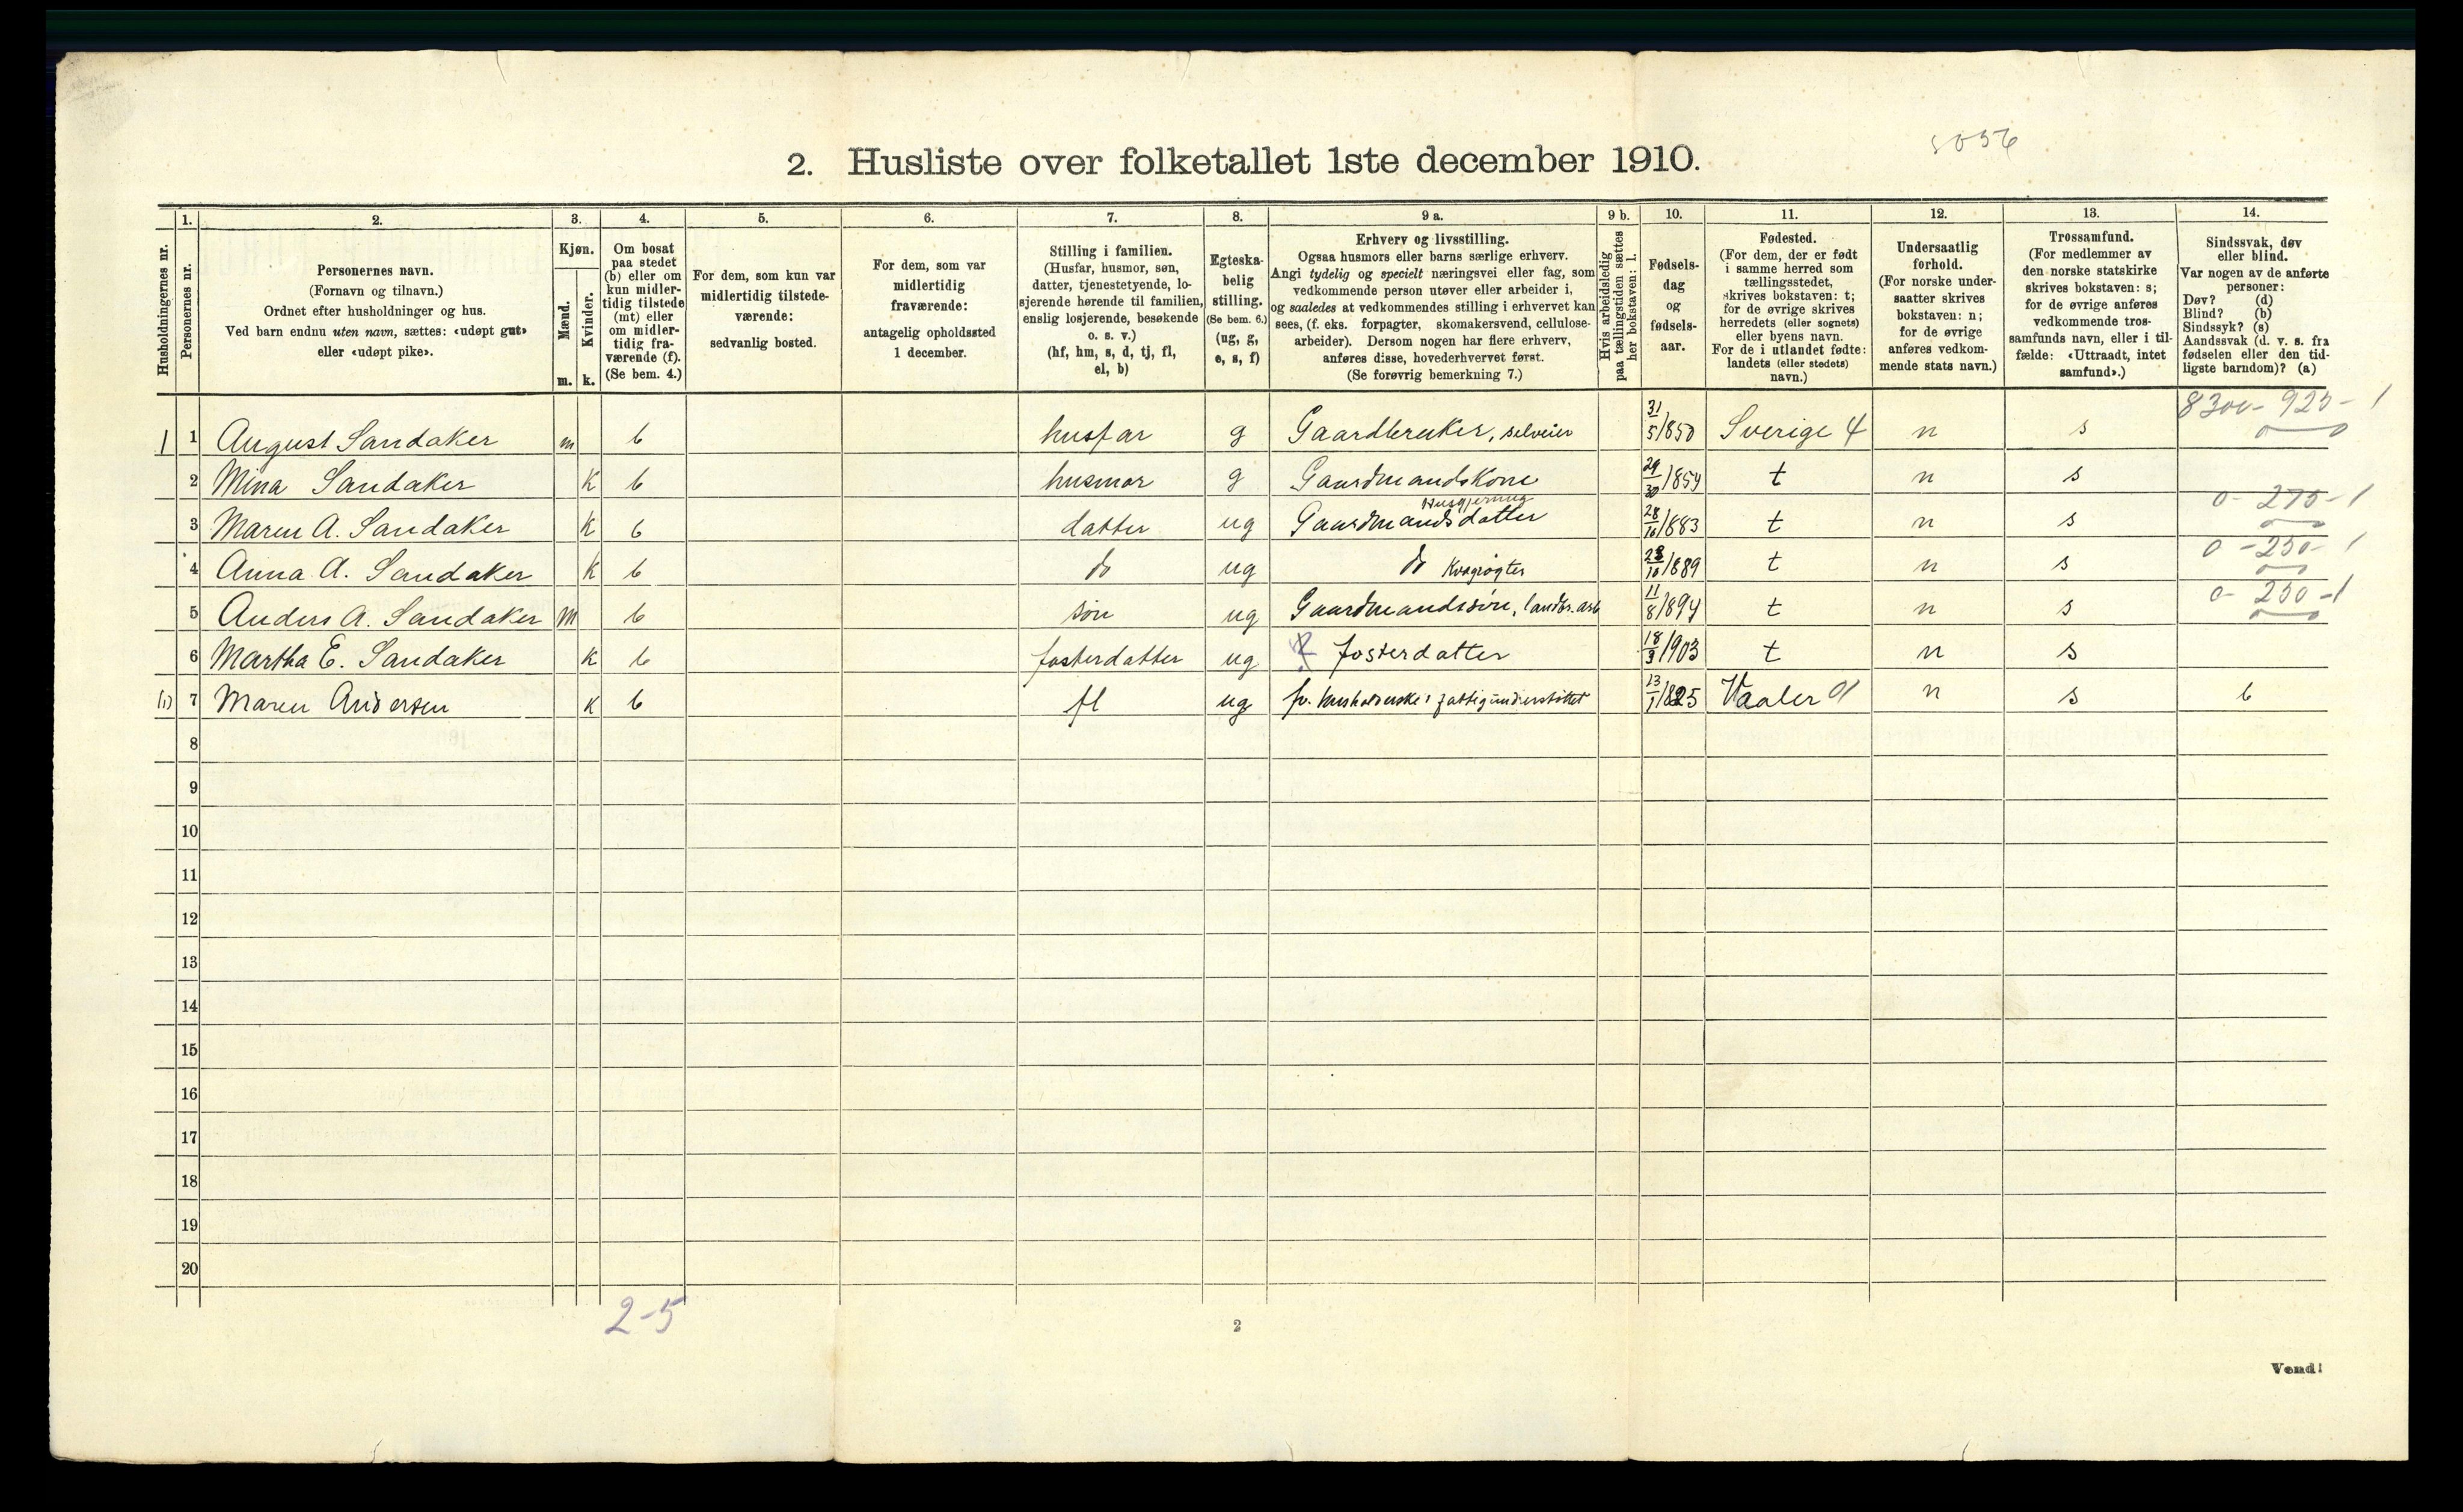 5056
2. Husliste over folketallet 1ste december 1910.
Husholdningernes nr.
1.
Personernes nr.
2.
Personernes navn.
(Fornavn og tilnavn.)
Ordnet efter husholdninger og hus.
Ved barn endnu uten navn, sættes: «udøpt gut»
eller «udøpt pike».
3.
Kjøn.
Mænd.
m.
Kvinder.
k.
4.
Om bosat
paa stedet
(b) eller om
kun midler-
tidig tilstede
(mt) eller
om midler-
tidig fra-
værende (f).
(Se bem. 4.)
5.
For dem, som kun var
midlertidig tilstede-
værende:
sedvanlig bosted.
6.
For dem, som var
midlertidig
fraværende:
antagelig opholdssted
1 december.
7.
Stilling i familien.
(Husfar, husmor, søn,
datter, tjenestetyende, lo-
sjerende hørende til familien,
enslig losjerende, besøkende
o. s. v.)
(hf, hm, s, d, tj, fl,
el, b)
8.
Egteska-
belig
stilling.
(Se bem. 6.)
(ug, g,
e, s, f)
9 a.
Erhverv og livsstilling.
Ogsaa husmors eller barns særlige erhverv.
Angi tydelig og specielt næringsvei eller fag, som
vedkommende person utøver eller arbeider i,
og saaledes at vedkommendes stilling i erhvervet kan
sees, (f. eks. forpagter, skomakersvend, cellulose-
arbeider). Dersom nogen har flere erhverv,
anføres disse, hovederhvervet først.
(Se forøvrig bemerkning 7.)
9 b.
Hvis arbeidsledig
paa tællingstiden sættes
her bokstaven: l.
10.
Fødsels-
dag
og
fødsels-
aar.
11.
Fødested.
(For dem, der er født
i samme herred som
tællingsstedet,
skrives bokstaven: t;
for de øvrige skrives
herredets (eller sognets)
eller byens navn.
For de i utlandet fødte:
landets (eller stedets)
navn.)
12.
Undersaatlig
forhold.
(For norske under-
saatter skrives
bokstaven: n;
for de øvrige
anføres vedkom-
mende stats navn.)
13.
Trossamfund.
(For medlemmer av
den norske statskirke
skrives bokstaven: s;
for de øvrige anføres
vedkommende tros-
samfunds navn, eller i til-
fælde: «Uttraadt, intet
samfund».)
14.
Sindssvak, døv
eller blind.
Var nogen av de anførte
personer:
Døv? (d)
Blind? (b)
Sindssyk? (s)
Aandssvak (d. v. s. fra
fødselen eller den tid-
ligste barndom)? (a)
8300 - 925 - 1
1 1 August Sandaker m b husfar g Gaardbruker, selveier 31/5 1850 Sverige 4 n s
2 Mina Sandaker k b husmor g Gaardmandskone 29/30 1854 t n s
0 - 275 - 1
Husgjerning
3 Maren A. Sandaker k b datter ug Gaardmandsdatter 28/10 1883 t n s
0 - 250 - 1
4 Anna A. Sandaker k b do ug do Kvægrøgter 28/10 1889 t n s
0 - 250 - 1
5 Anders A. Sandaker m b søn ug Gaardmandssøn, landbr. arb 11/8 1894 t n s
6 Martha E. Sandaker k b fosterdatter ug fosterdatter 18/3 1903 t n s
(1) 7 Maren Andersen k b fl ug fv. husholderske, fattigunderstøttet 13/1 1825 Vaaler 01 n s b
8
9
10
11
12
13
14
15
16
17
18
19
20
2-5
2
Vend!